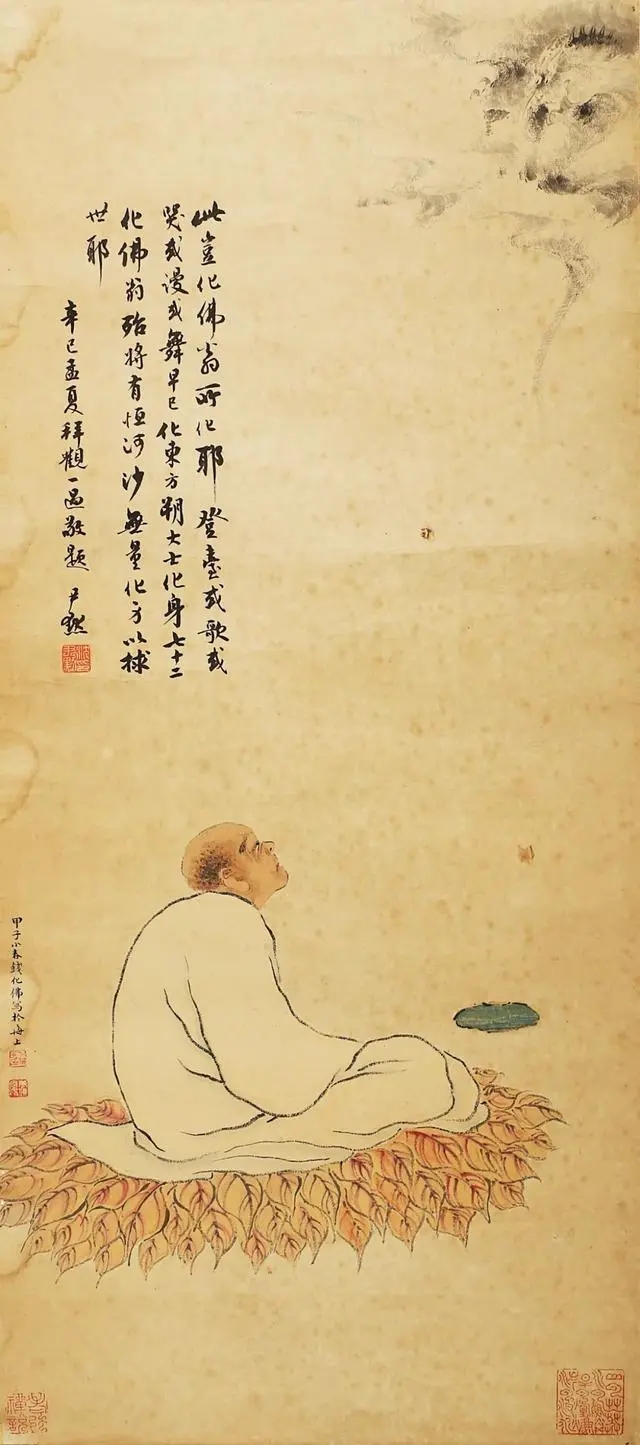 此豈化佛翁所化耶登臺或歌或
哭或謾或舞早已化東方朔大士化身七十二
化佛翁殆將有恒河沙無量化方以捄
世耶
辛巳孟夏拜觀一過敬題 尹默
甲子小春錢化佛寫於海上